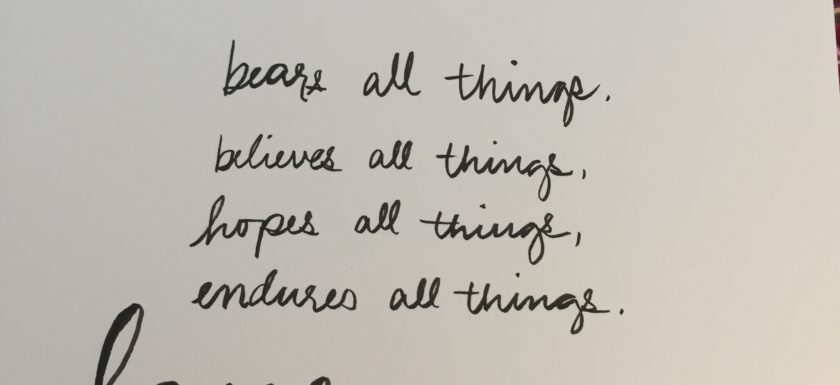 bears all things.
believes all things,
hopes all things,
endures all things.